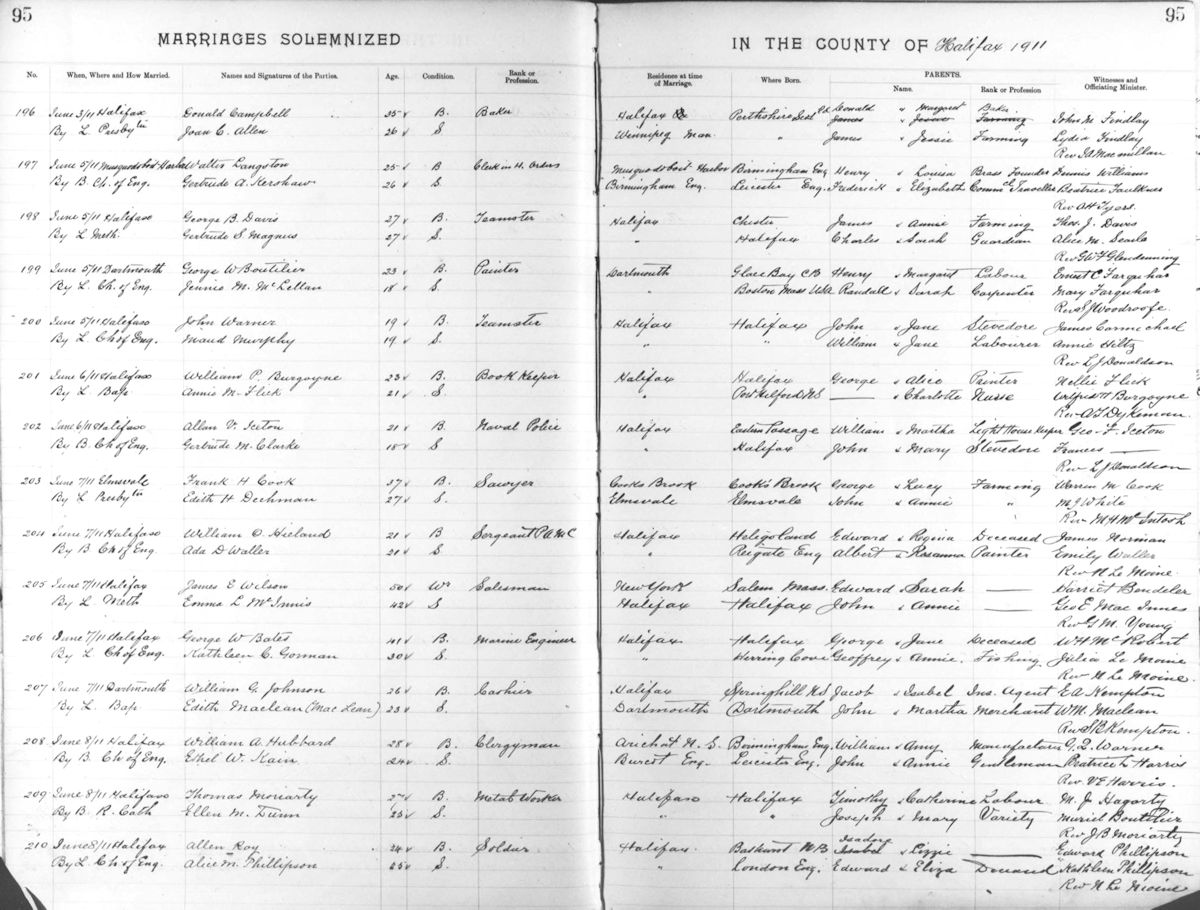 95
MARRIAGES SOLEMNIZED
No. When, Where and How Married. Names and Signatures of the Parties. Age. Condition. Rank or Profession.
196 June 3/11 Halifax Donald Campbell 35 B. Baker
By L Presbytn Joan C. Allen 26 S
197 June 5/11 Musquodoboit Harbor Walter Langston 25 B Clerk in H. Orders
By B. Ch. of Eng. Gertrude A. Kershaw 26 S.
198 June 5/11 Halifax George B. Davis 27 B. Teamster
By L. Meth. Gertrude S. Magnus 27 S.
199 June 5/11 Dartmouth George W Boutilier 23 B. Painter
By L. Ch. of Eng. Jennie M. McLellan 18 S.
200 June 5/11 Halifax John Warner 19 B. Teamster
By L. Ch of Eng. Maud Murphy 19 S.
201 June 6/11 Halifax William P. Burgoyne 23 B. Book Keeper
By L. Bap. Annie M. Flick 21 S.
202 June 6/11 Halifax Allan V. Iceton 21 B Naval Police
By B. Ch of Eng. Gertrude M. Clarke 18 S.
203 June 7/11 Elmsvale Frank H Cook 37 B. Sawyer
By L. Presbytn Edith H Dechman 27 S.
204 June 7/11 Halifax William O. Hieland 21 B Sergeant P.A.M.C
By B Ch of Eng. Ada D Waller 21 S
205 June 7/11 Halifax James E Wilson 50 Wr Salesman
By L. Meth Emma L McInnis 42 S
206 June 7/11 Halifax George W Bates 41 B. Marine Engineer
By L Ch of Eng. Kathleen C. Gorman 30 S.
207 June 7/11 Dartmouth William G. Johnson 26 B. Cashier
By L. Bap Edith Maclean (MacLean) 23 S.
208 June 8/11 Halifax William A. Hubbard 28 B. Clergyman
By B. Ch of Eng. Ethel W. Kain 24 S.
209 June 8/11 Halifax Thomas Moriarty B. Metal Worker
By B. R. Cath Ellen M. Dunn 25 S.
210 June 8/11 Halifax Allen Roy 24 B. Soldier
By L. Ch of Eng. Alice M. Phillipson 25 S.
95
IN THE COUNTY OF Halifax 1911
Residence at time of Marriage. Where Born. PARENTS. Name. Rank or Profession Witnesses and Officiating Minister.
Donald " Margaret Baker
Halifax Perthshire Scotld James " Jessie Farming John M. Findlay
Winnipeg Man. " James " Jessie Farming Lydia Findlay
Rev Macmillan
Musquodoboit Harbor Birmingham Eng Henry " Louisa Brass Founder Dennis Williams
Birmingham Eng. Leicester Eng. Frederick & Elizabeth Commcl Traveller Beatrice Faulkner
Rev. A H Tyers.
Halifax Chester James & Annie Farming Thos. J. Davis
" Halifax Charles & Sarah Guardian Alice M. Searle
Rev G W F Glendenning
Dartmouth Glace Bay CB Henry & Margaret Labour Ernest C Farquhar
" Boston Mass USA Randall & Sarah Carpenter Mary Farquhar
Rev S J Woodroofe
Halifax Halifax John & Jane Stevedore James Carmichael
" " William & Jane Labourer Annie Hiltz
Rev L J Donaldson
Halifax Halifax George & Alice Printer Nellie Flick
" Port Hilford N.S — & Charlotte Nurse Wilfred H Burgoyne
Rev. A F Dykeman
Halifax Eastern Passage William & Martha Light House Keeper Geo. F. Iceton
" Halifax John & Mary Stevedore Frances —
Rev L J Donaldson
Cooks Brook Cook's Brook George & Lucy Farming Warren M Cook
Elmsvale Elmsvale John & Annie " M J White
Rev M H McIntosh
Halifax Heligoland Edward & Regina Deceased James Norman
" Reigate Eng Albert & Rosanna Painter Emily Waller
Rev N Le Moine.
New York Salem Mass. Edward & Sarah — Harriet Bendeler
Halifax Halifax John & Annie — Geo E MacInnes
Rev G M. Young
Halifax Halifax George & Jane Deceased W H McRobert
" Herring Cove Geoffrey & Annie. Fishing Julia Le Moine
Rev N Le Moine.
Halifax Springhill N.S Jacob & Isabel Ins. Agent E A Kempton
Dartmouth Dartmouth John & Martha Merchant W M. Maclean
Rev S B Kempton.
Arichat N.S. Birmingham Eng. William & Amy Manufacturer G. L. Warner
Burcot Eng. Leicester Eng. John & Annie Gentleman Beatrice L Harris
Rev V E Harris.
Halifax Halifax Timothy & Catherine Labour M. J Hagarty
" " Joseph & Mary Variety Muriel Boutilier
Rev J B Moriarty
Isadore
Halifax Bathurst N B Isabel & Lizzie — Edward Phillipson
" London Eng. Edward & Eliza Deceased Kathleen Phillipson
Rev N Le Moine